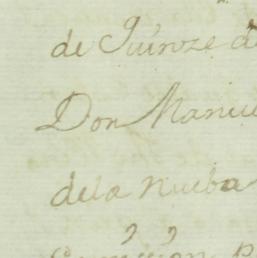 de Quinze de
Don Manue
dela nueba